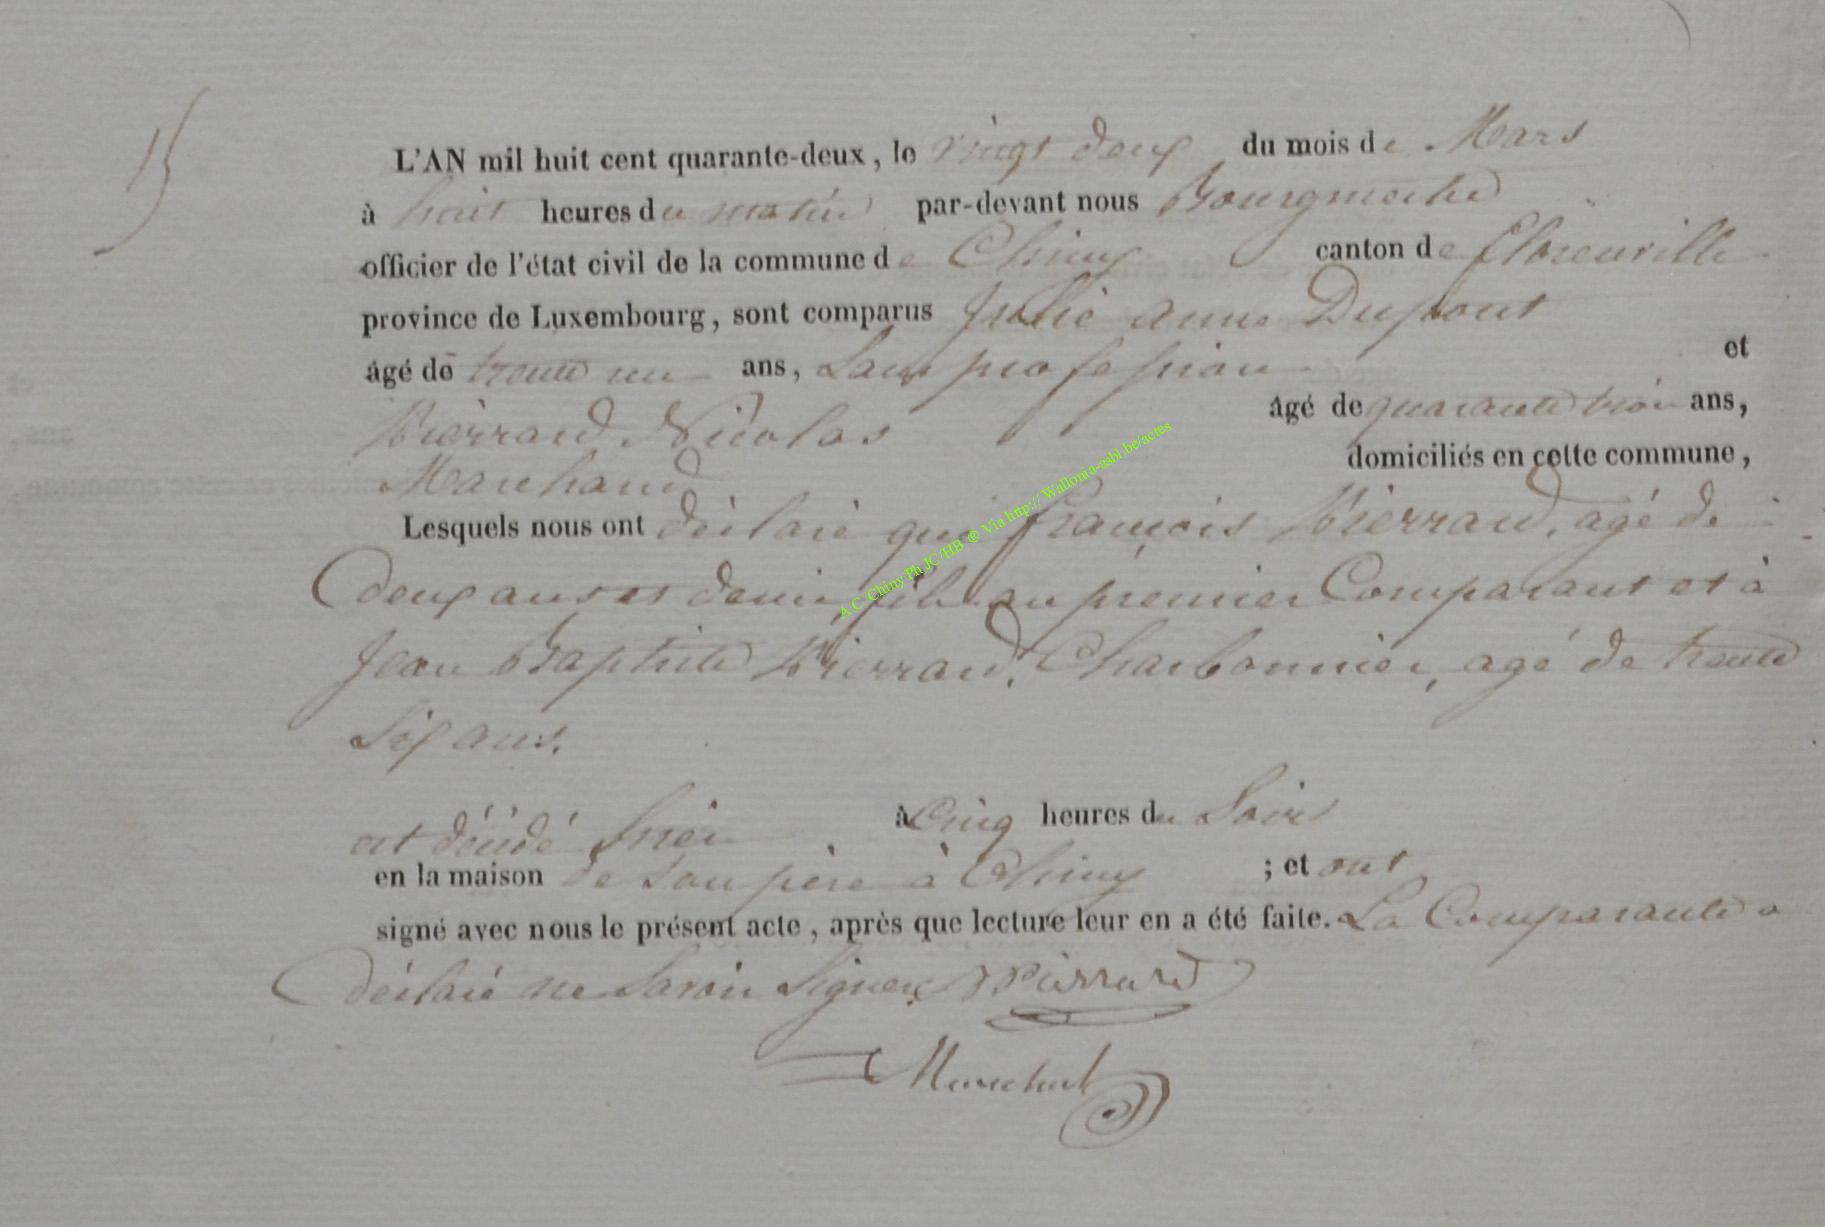 15
L'AN mil huit cent quarante-deux, le vingt deux du mois de Mars
à huit heures du matin par-devant nous Bourgmestre
officier de l'état civil de la commune de Chiny canton de Florenville
province de Luxembourg, sont comparus Julie Anne Dupont
âgé de trente un ans, Sans profession et
Pierrard Nicolas âgé de quarante trois ans,
Marchand domiciliés en cette commune,
Lesquels nous ont déclaré que François Pierrard, agé de
deux ans et demi, fils au premier Comparant et à
Jean Baptiste Pierrard, Charbonnier, agé de trente
Six ans.
est décédé hier à Cinq heures du Soir
en la maison de Son père à Chiny ; et ont
signé avec nous le présent acte, après que lecture leur en a été faite. La Comparante a
déclaré ne Savoir Signer, Pierrard
Marechal
A C Chiny Ph JC/HB ® Via http:// Wallonia-asbl.be/actes